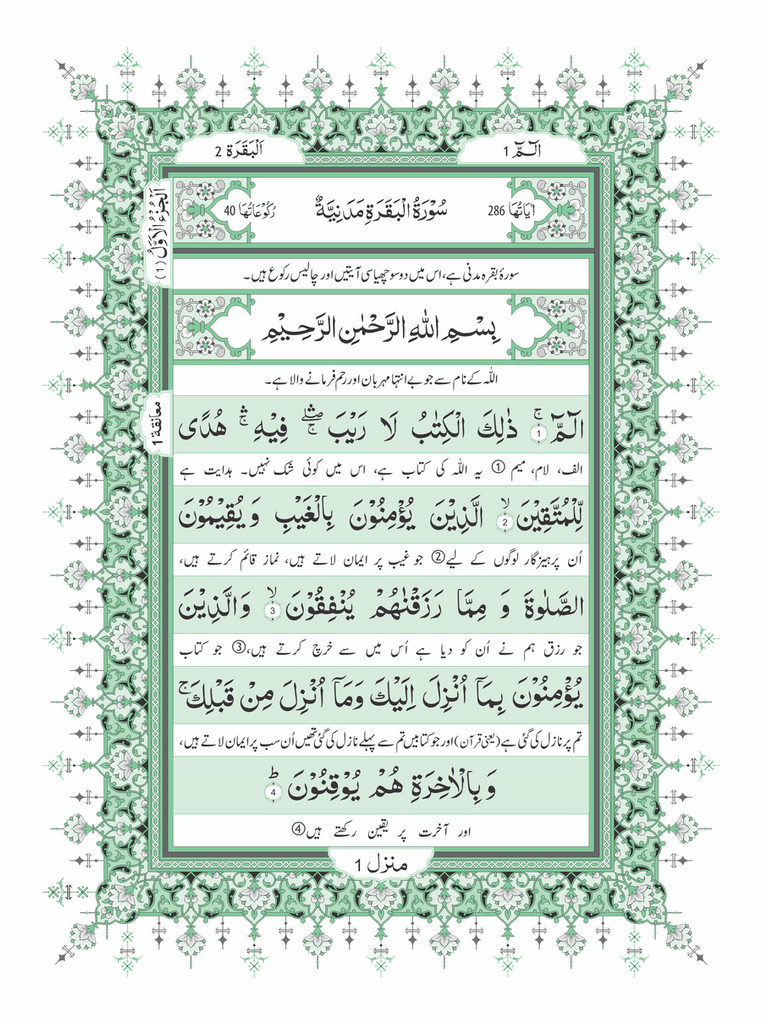 الٓـمّٓ 1
اَلْبَقَرَة 2
اَلْجُزْءُ الْاَوَّلُ (1)
اٰيَاتُهَا 286
سُوْرَةُ الْبَقَرَةِ مَدَنِيَّةٌ
رُكُوْعَاتُهَا 40
سورۂ بقرہ مدنی ہے، اس میں دو سو چھیاسی آیتیں اور چالیس رکوع ہیں۔
بِسْمِ اللّٰهِ الرَّحْمٰنِ الرَّحِيْمِ
اللّٰہ کے نام سے جو بے انتہا مہربان اور رحم فرمانے والا ہے۔
معانقة 1
الٓـمّٓ ۚ 1 ذٰلِكَ الْكِتٰبُ لَا رَيْبَ ۛۖ فِيْهِ ۛۚ هُدًى
الف، لام، میم ① یہ اللّٰہ کی کتاب ہے، اس میں کوئی شک نہیں۔ ہدایت ہے
لِّلْمُتَّقِيْنَ ۙ 2 الَّذِيْنَ يُؤْمِنُوْنَ بِالْغَيْبِ وَيُقِيْمُوْنَ
اُن پرہیزگار لوگوں کے لیے ② جو غیب پر ایمان لاتے ہیں، نماز قائم کرتے ہیں،
الصَّلٰوةَ وَ مِمَّا رَزَقْنٰهُمْ يُنْفِقُوْنَ ۙ 3 وَالَّذِيْنَ
جو رزق ہم نے اُن کو دیا ہے اُس میں سے خرچ کرتے ہیں، ③ جو کتاب
يُؤْمِنُوْنَ بِمَآ اُنْزِلَ اِلَيْكَ وَمَآ اُنْزِلَ مِنْ قَبْلِكَ ۚ
تم پر نازل کی گئی ہے (یعنی قرآن) اور جو کتابیں تم سے پہلے نازل کی گئی تھیں اُن سب پر ایمان لاتے ہیں،
وَبِالْاٰخِرَةِ هُمْ يُوْقِنُوْنَ ؕ 4
اور آخرت پر یقین رکھتے ہیں ④
منزل 1